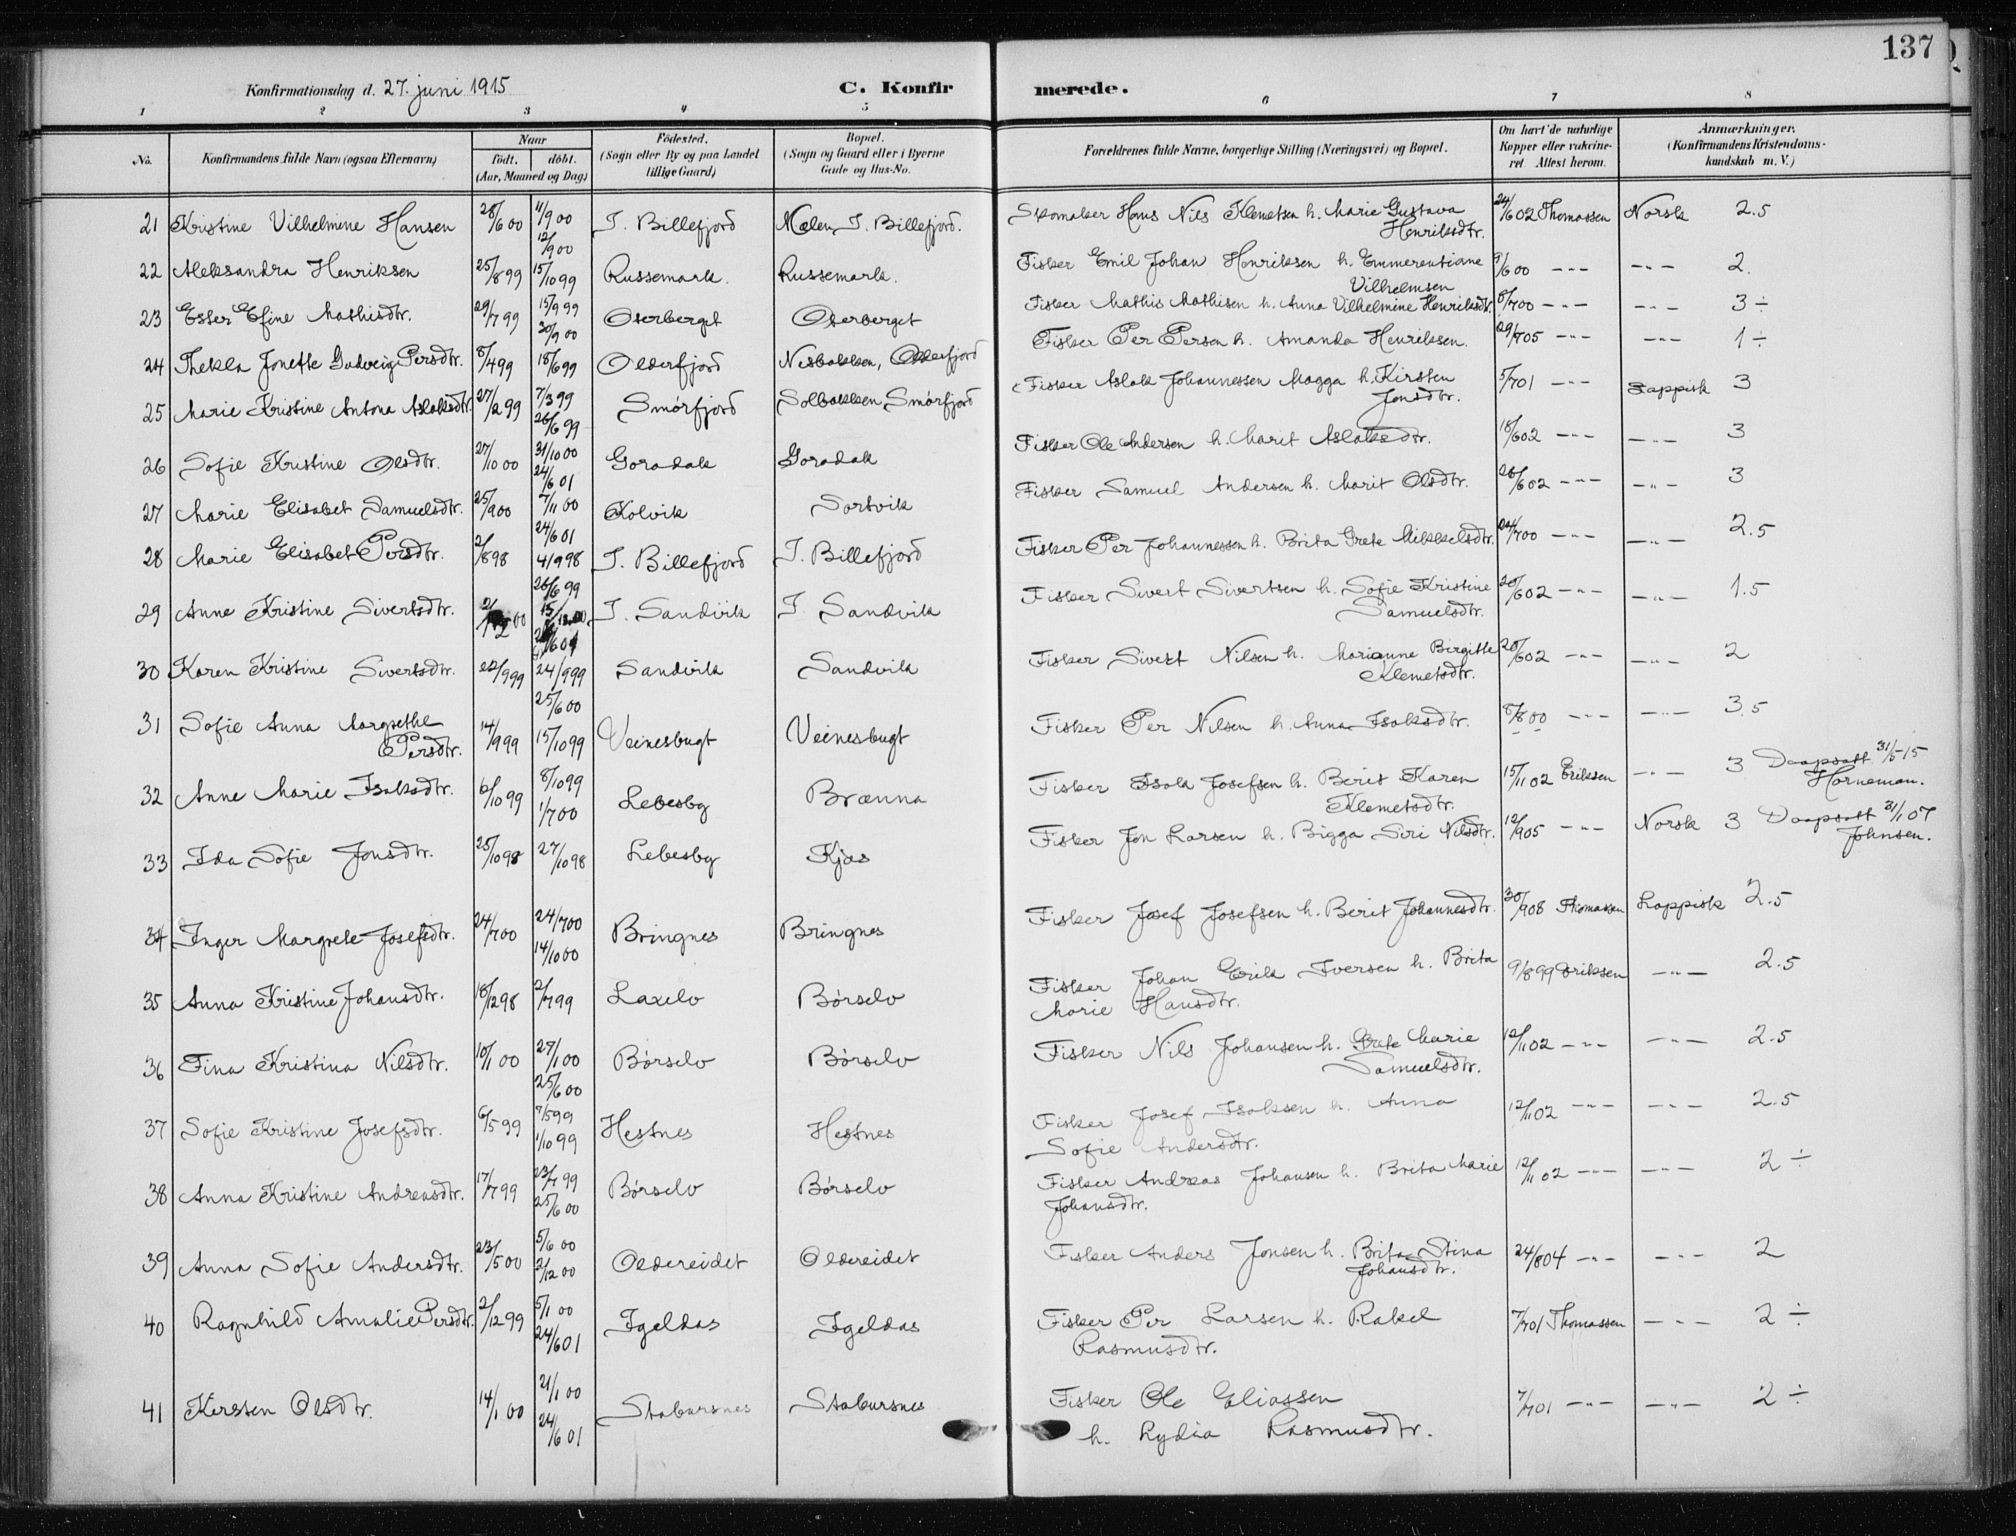 137
Konfirmationsdag d. 27. juni 1915 C. Konfir merede.
1 2 3 4 5 6 7 8
No. Konfirmandens fulde Navn (ogsaa Efternavn) Naar født. døbt. (Aar, Maaned og Dag) Fødested. (Sogn eller By og paa Landet tillige Gaard) Bopæl. (Sogn og Gaard eller i Byerne Gade og Hus-No. Forældrenes fulde Navne, borgerlige Stilling (Næringsvei) og Bopæl. Om havt de naturlige Kopper eller vaksineret. Attest herom. Anmærkninger. (Konfirmandens Kristendomskundskab m. V.)
21 Kristine Vilhelmine Hansen 28/6 00 11/9 00 12/9 00 I. Billefjord Mælen, I. Billefjord. Skomaker Hans Nils Klemetsen h. Marie Gustava Henriksdtr. 24/6 02 Thomassen Norsk 2.5
22 Aleksandra Henriksen 25/8 99 15/10 99 Russemark. Russemark. Fisker Emil Johan Henriksen h. Emmerentiane Vilhelmsen 9/6 00 -"- -"- 2.
23 Ester Efine Mathisdtr. 29/7 99 15/9 99 30/9 00 Oterberget Oterberget Fisker Mathis Mathisen h. Anna Vilhelmine Henriksdtr. 8/7 00 -"- -"- 3 ÷
24 Thekla Jonette Gudveig Persdtr. 8/4 99 18/6 99 Olderfjord Nesbakken, Olderfjord Fisker Per Persen h. Amanda Henriksen. 29/7 05 -"- -"- 1 ÷
25 Marie Kristine Antona Aslaksdtr. 27/2 99 7/3 99 26/6 99 Smørfjord Solbakken, Smørfjord Fisker Aslak Johannessen Magga h. Kirsten Jonsdtr. 5/7 01 -"- Lappisk 3
26 Sofie Kristine Olsdtr. 27/10 00 31/10 00 24/6 01 Goradak Goradak Fisker Ole Andersen h. Marit Aslaksdtr. 18/6 02 -"- -"- 3
27 Marie Elisabet Samuelsdtr. 25/9 00 7/11 00 24/6 01 Kolvik Sortvik Fisker Samuel Andersen h. Marit Olsdtr. 26/6 02 -"- -"- 3
28 Marie Elisabet Persdtr. 2/8 98 4/9 98 26/6 99 I. Billefjord I. Billefjord Fisker Per Johannessen h. Brita Grete Mikkelsdtr. 24/7 00 -"- -"- 2.5
29 Anne Kristine Sivertsdtr. 2/12 00 15/12 00 24/6 01 I. Sandvik I. Sandvik Fisker Sivert Sivertsen h. Sofie Kristine Samuelsdtr. 20/6 02 -"- -"- 1.5
30 Karen Kristine Sivertsdtr. 22/9 99 24/9 99 25/6 00 Sandvik Sandvik Fisker Sivert Nilsen h. Marianne Birgitte Klemetsdtr. 20/6 02 -"- -"- 2
31 Sofie Anna Margrethe Persdtr. 14/9 99 15/10 99 Veinesbugt Veinesbugt Fisker Per Nilsen h. Anna Isaksdtr. 8/8 00 -"- -"- 3.5
32 Anne Marie Isaksdtr. 6/10 99 8/10 99 1/7 00 Lebesby Brænna Fisker Isak Josefsen h. Berit Karen Klemetsdtr. 15/11 02 Eriksen -"- 3 Daapsatt 31/5-15 Horneman.
33 Ida Sofie Jonsdtr. 25/10 98 27/10 98 Lebesby Kjæs Fisker Jon Larsen h. Bigga Siri Nilsdtr. 12/9 05 -"- Norsk 3 Daapsatt 31/1 07 Johnsen.
34 Inger Margrete Josefsdtr. 24/7 00 24/7 00 14/10 00 Bringnes Bringnes Fisker Josef Josefsen h. Berit Johannesdtr. 30/9 08 Thomassen Lappisk 2.5
35 Anna Kristine Johansdtr. 18/12 98 2/7 99 Laxelv Børselv Fisker Johan Erik Iversen h. Brita Marie Hansdtr. 9/8 99 Eriksen -"- 2.5
36 Tina Kristina Nilsdtr. 10/1 00 27/1 00 25/6 00 Børselv Børselv Fisker Nils Johansen h. Grete Marie Samuelsdtr. 12/11 02 -"- -"- 2.5
37 Sofie Kristine Josefsdtr. 6/5 99 7/5 99 1/10 99 Hestnes Hestnes Fisker Josef Isaksen h. Anna Sofie Andersdtr. 12/11 02 -"- -"- 2.5
38 Anna Kristine Andreasdtr. 17/7 99 23/7 99 25/6 00 Børselv Børselv Fisker Andreas Johansen h. Brita Marie Johansdtr. 12/11 02 -"- -"- 2 ÷
39 Anna Sofie Andersdtr. 23/5 00 5/6 00 2/12 00 Oldereidet Oldereidet Fisker Anders Jonsen h. Brita Stina Johansdtr. 24/8 04 -"- -"- 2
40 Ragnhild Amalie Persdtr. 2/12 99 5/1 00 24/6 01 Igeldas Igeldas Fisker Per Larsen h. Rakel Rasmusdtr. 7/7 01 Thomassen -"- 2 ÷
41 Kersten Olsdtr. 14/1 00 21/1 00 24/6 01 Stabursnes Stabursnes Fisker Ole Eliassen h. Lydia Rasmusdtr. 7/7 01 -"- -"- 2 ÷